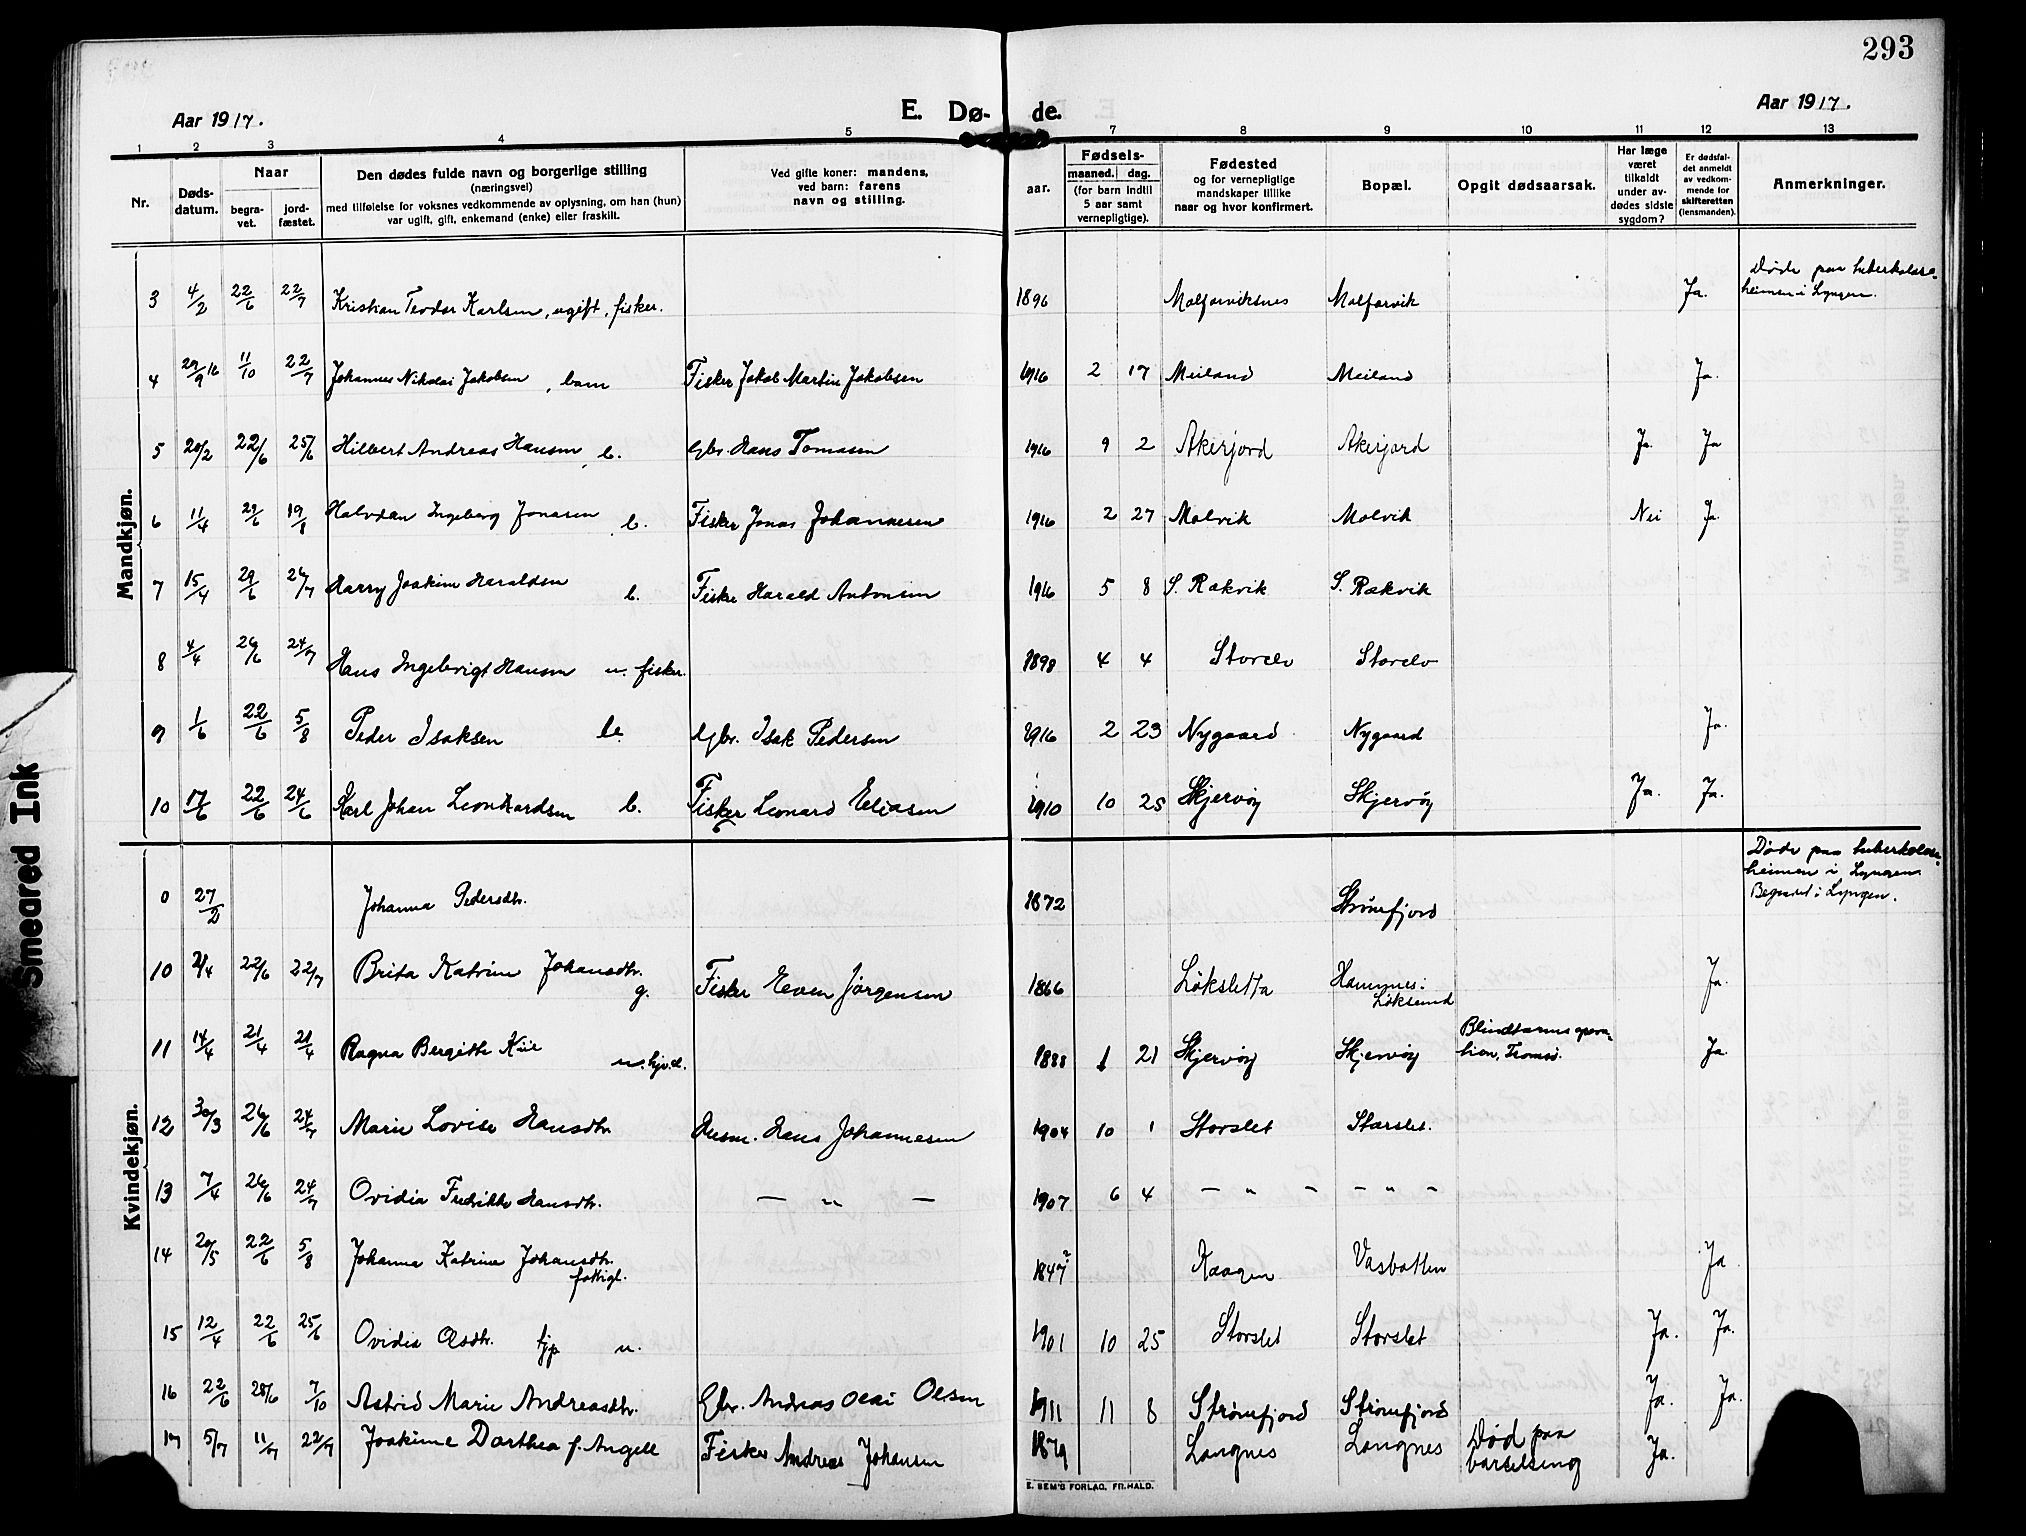 293
Aar 1917. E. Dø- de. Aar 1917.
1 2 3 4 5 7 8 9 10 11 12 13
Nr. Døds-datum. Naar begra-vet. jord-fæstet. Den dødes fulde navn og borgerlige stilling (næringsvei) med tilføielse for voksnes vedkommende av oplysning, om han (hun) var ugift, gift, enkemand (enke) eller fraskilt. Ved gifte koner: mandens, ved barn: farens navn og stilling. Fødsels- aar. maaned. dag. (for barn indtil 5 aar samt vernepligtige). Fødested og for vernepligtige mandskaper tillike naar og hvor konfirmert. Bopæl. Opgit dødsaarsak. Har læge været tilkaldt under av-dødes sidste sygdom? Er dødsfal-det anmeldt av vedkom-mende for skifteretten (lensmanden). Anmerkninger.
Mandkjøn.
3 4/2 22/6 22/7 Kristian Teodor Karlsen, ugift, fisker. 1896 Molforviksnes Molforvik Ja. Døde paa tuberkulose-heimen i Lyngen.
4 29/9 16 11/10 22/7 Johannes Nikolai Jakobsen, barn Fisker Jakob Martin Jakobsen 1916 2 17 Meiland Meiland Ja.
5 20/2 22/6 25/6 Hilbert Andreas Hansen, b. Gbr. Hans Tomasen 1916 9 2 Akerjord Akerjord Ja. Ja
6 11/4 29/6 19/8 Halvdan Ingeberg Jonasen, b. Fisker Jonas Johannesen 1916 2 27 Molvik Molvik Nei Ja.
7 15/4 29/6 26/7 Harry Joakim Haraldsen b. Fisker Harald Antonsen 1916 5 8 S. Rækvik S. Rækvik
8 4/4 26/6 24/7 Hans Ingebrigt Hansen u. fisker. 1898 4 4 Storelv Storelv
9 1/6 22/6 5/8 Peder Isaksen b. Gbr. Isak Pedersen 1916 2 23 Nygaard Nygaard Ja.
10 17/6 22/6 24/6 Karl Johan Leonhardsen b. Fisker Leonard Eliasen 1910 10 25 Skjervøy Skjervøy Ja. Ja.
Kvindekjøn.
0 27/2 Johanna Pedersdtr. 1872 Strømfjord Døde paa tuberkulose-heimen i Lyngen. Begravet i Lyngen.
10 2/4 22/6 22/7 Brita Katrine Johansdtr. g. Fisker Even Jørgensen 1866 Løksletta Hamnnes i Løksund Ja.
11 14/4 21/4 21/4 Ragna Bergitte Kiil u. hjv.d. 1888 1 21 Skjervøy Skjervøy Blindtarmsopera-tion, Tromsø. Ja.
12 30/3 26/6 24/7 Marie Lovise Hansdtr. Husm. Hans Johannesen 1904 10 1 Storslet Storslet.
13 7/4 26/6 24/7 Ovidia Fredrikke Hansdtr. — „ — 1907 6 4 — „ — — „ —
14 20/5 22/6 5/8 Johanna Katrine Johansdtr. fattigl. 1847? Kaagen Vasbotten Ja
15 12/4 22/6 25/6 Ovidia Olsdtr. tjp u. 1901 10 25 Storslet Storslet Ja. Ja.
16 22/6 28/6 7/10 Astrid Marie Andreasdtr. Gbr. Andreas Olai Olsen 1911 11 8 Strømfjord Strømfjord Ja. Ja.
17 5/7 11/7 22/7 Joakime Dorthea f. Angell Fisker Andreas Johansen 1879 Langnes Langnes Død paa barselseng Ja.
E. SEM'S FORLAG, FR.HALD.
Smeared Ink